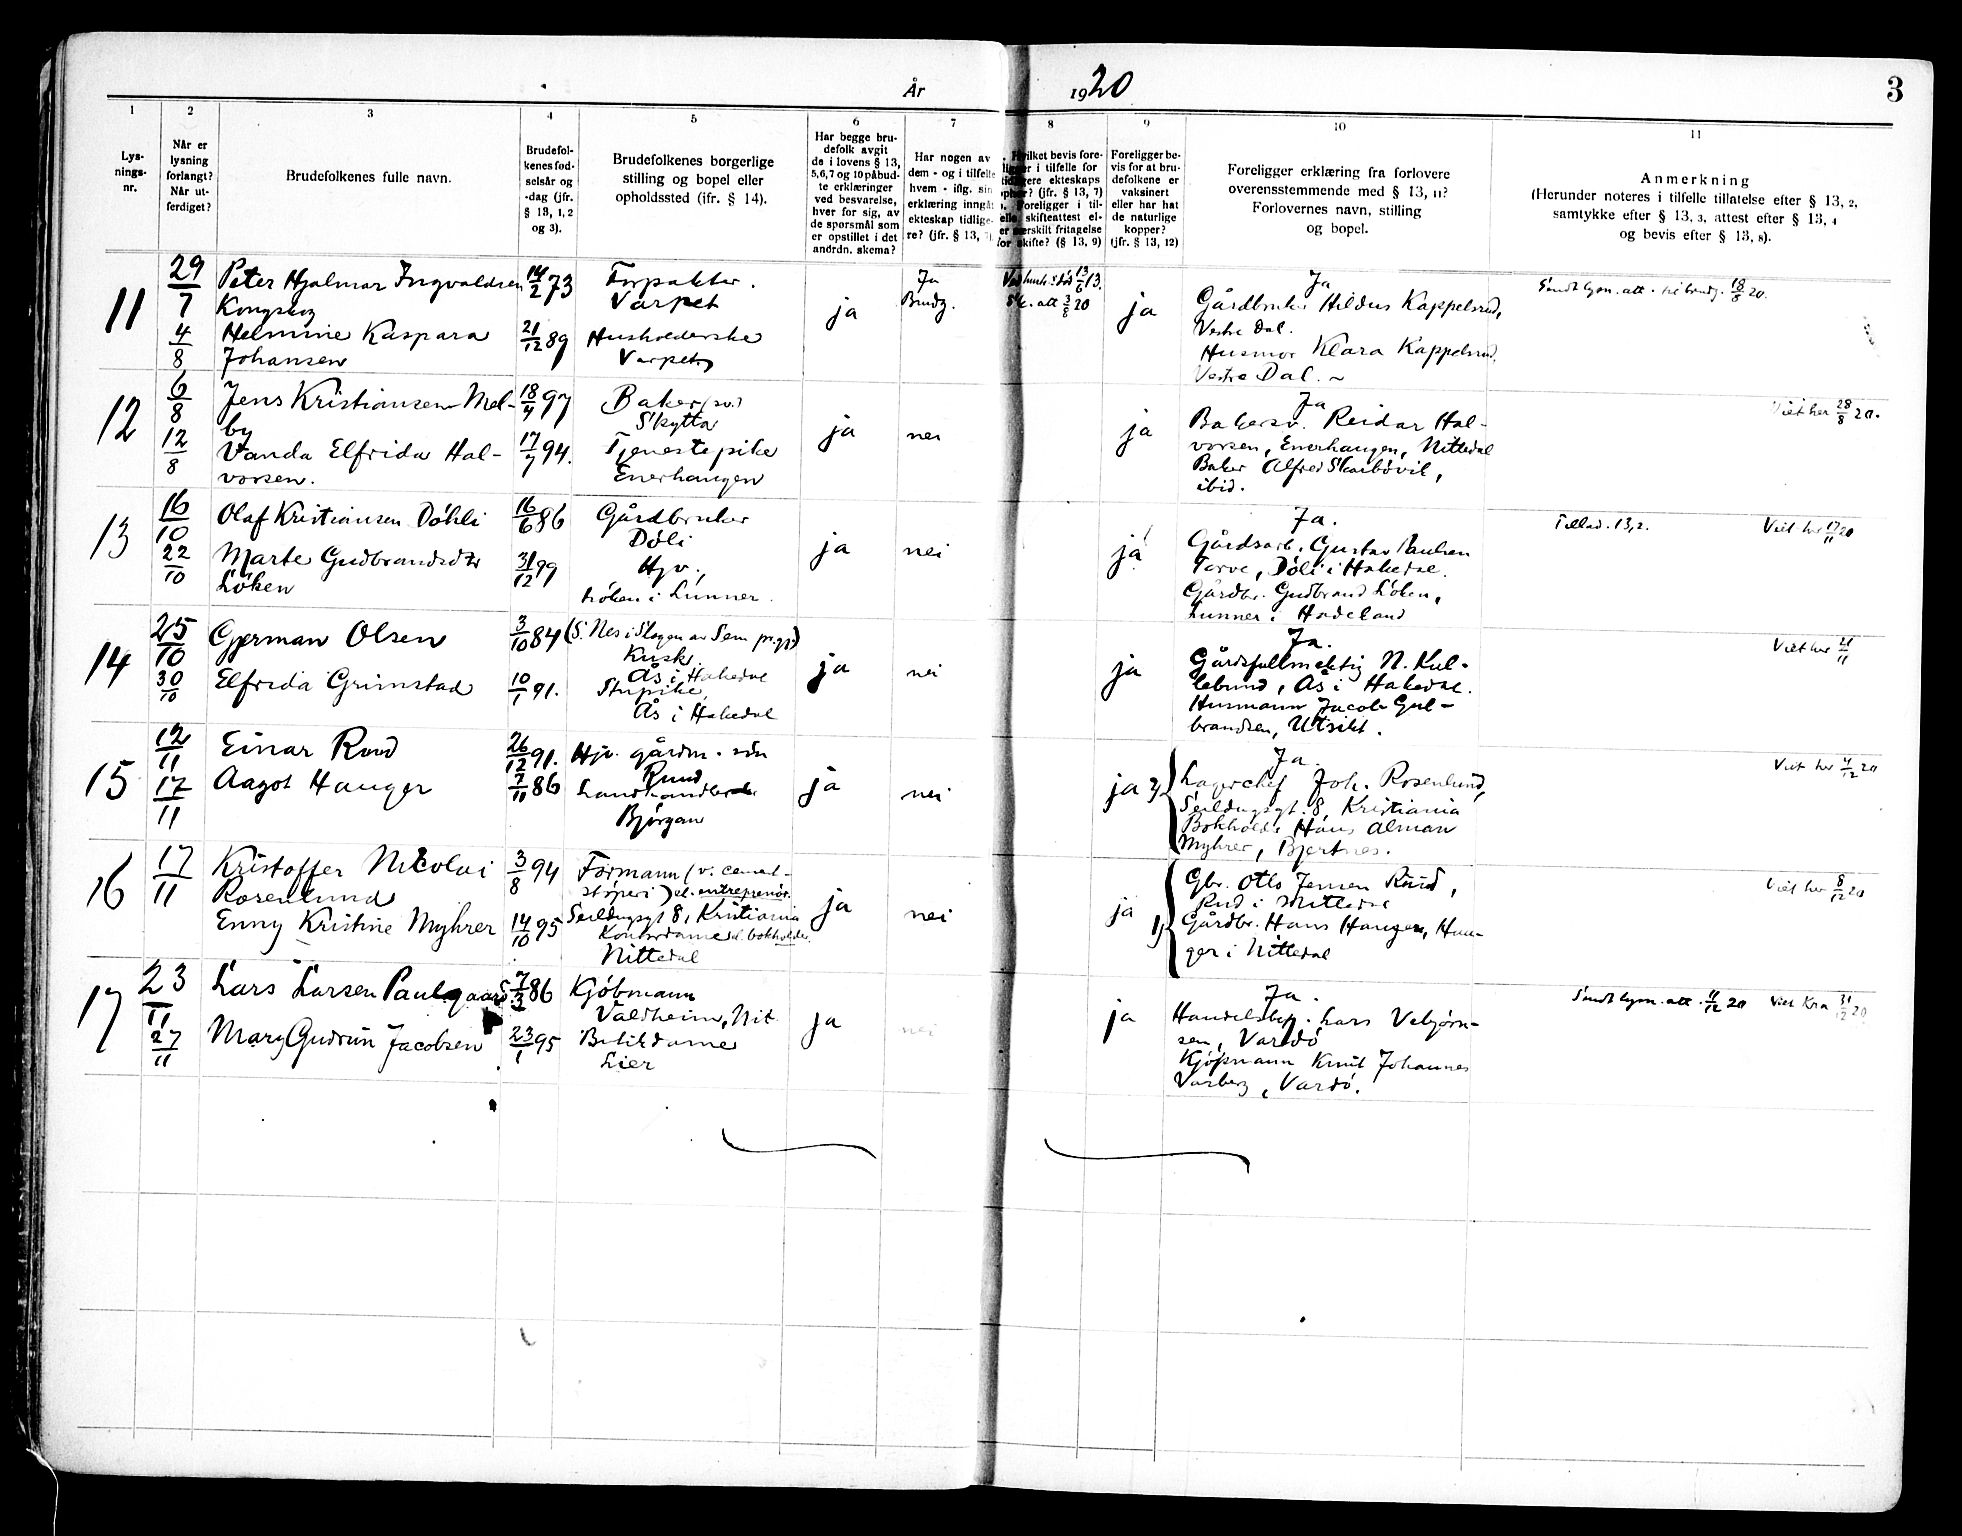 År 1920
3
1 2 3 4 5 6 7 8 9 10 11
Lys-
nings-
nr.
Når er
lysning
forlangt?
Når ut-
ferdiget?
Brudefolkenes fulle navn.
Brudefol-
kenes fød-
selsår og
-dag (jfr.
§ 13, 1, 2
og 3).
Brudefolkenes borgerlige
stilling og bopel eller
opholdssted (ifr. § 14).
Har begge bru-
defolk avgit
de i lovens § 13,
5,6,7 og 10 påbud-
te erklæringer
ved besvarelse,
hver for sig, av
de spørsmål som
er opstillet i det
anordn. skema?
Har nogen av
dem - og i tilfelle
hvem - iflg. sin
erklæring inngåt
ekteskap tidlige-
re? (jfr. § 13, 7)
Hvilket bevis fore-
ligger i tilfelle for
tidligere ekteskaps
ophør? (jfr. § 13, 7)
Foreligger i til-
felle skifteattest el-
ler særskilt fritagelse
for skifte? (§ 13, 9)
Foreligger be-
vis for at bru-
defolkene er
vaksinert
eller har hat
de naturlige
kopper?
(jfr. § 13, 12)
Foreligger erklæring fra forlovere
overensstemmende med § 13, 11?
Forlovernes navn, stilling
og bopel.
Anmerkning
(Herunder noteres i tilfelle tillatelse efter § 13, 2,
samtykke efter § 13, 3, attest efter § 13, 4
og bevis efter § 13, 8).
11
29/7
4/8
Peter Hjalmar Ingvaldsen
Kongskog
Helmine Kaspara
Johansen
14/2 73
21/12 89
Forpakter.
Varpet
Husholderske
Varpet
ja
Ja
Brudg.
13/6 13.
Sk. att 3/8 20
ja
Ja
Gårdbruk. Hildus Kappelsrud,
Vestre Dal.
Husmor Klara Kappelsrud,
Vestre Dal. ~
Sendt lysn. att. til brudg. 18/8 20.
12
6/8
12/8
Jens Kristiansen Mel-
by
Vanda Elfrida Hal-
vorsen.
18/4 97
17/7 94.
Baker (sv.)
Skytta
Tjenestepike
Enerhaugen
ja
nei
ja
Ja
Bakersv. Reidar Hal-
vorsen, Enerhaugen, Nittedal
Baker Alfred Skarbövik,
ibid.
Viet her 28/8 20.
13
16/10
22/10
Olaf Kristiansen Döhli
Marte Gudbrandsdtr
Löken
16/6 86
31/12 99
Gårdbruker
Döli
Hjv.,
Löken i Lunner.
ja
nei
ja
Ja.
Gårdsarb. Gustav Paulsen
Torve, Döli i Hakedal.
Gårdbr. Gudbrand Löken,
Lunner i Hadeland
Tillad. 13,2.
Viet her 17/11 20
14
25/10
30/10
German Olsen
Elfrida Grimstad
3/10 84
10/1 91.
(S. Nes i Slagen av Sem pr.gj.)
Kusk
Ås i Hakedal
Stupike,
Ås i Hakedal
ja
nei
ja
Ja.
Gårdsfullmektig N. Kul-
lebund, Ås i Hakedal.
Husmann Jacob Gul-
brandsen, Utsikt.
Viet her 21/11
15
12/11
17/11
Einar Ruud
Aagot Hauger
26/12 91.
7/11 86
Hjv. gårdm. sön
Ruud
Landhandlerske
Björgan
ja
nei
ja
Ja.
Lagerchef Joh. Rosenlund,
Seildugsgt. 8, Kristiania
Bokholder Hans Alman
Myhrer, Bjertnes.
Viet her 4/12 20
16
17/11
Kristoffer Nicolai
Rosenlund
Enny Kristine Myhrer
3/8 94
14/10 95
Formann (v. cement-
støperi) el. entreprenör.
Seildugsgt 8, Kristiania
Kontordame el. bokholder
Nittedal
ja
nei
ja
Gbr. Otto Jensen Ruud,
Rud i Nittedal
Gårdbr. Hans Hauger, Hau-
ger i Nittedal
Viet her 8/12 20
17
23/11
27/11
Lars Larsen Paulsgaard
Mary Gudrun Jacobsen
7/3 86
23/1 95
Kjöbmann
Valdheim, Nit.
Butikdame
Lier
ja
nei
ja
Ja.
Handelsbest. Lars Vebjörn-
sen, Vardö
Kjöpmann Knut Johannes
Varberg, Vardö.
Sendt lysn. att. 11/12 20
Viet Kra 31/12 20